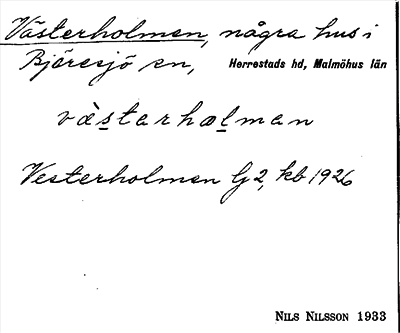 Västerholmen, några hus i
Bjäresjö sn, Herrestads hd, Malmöhus län
væ̀starhalman
Vesterholmen Lj 2, kb 1926
NILS NILSSON 1933